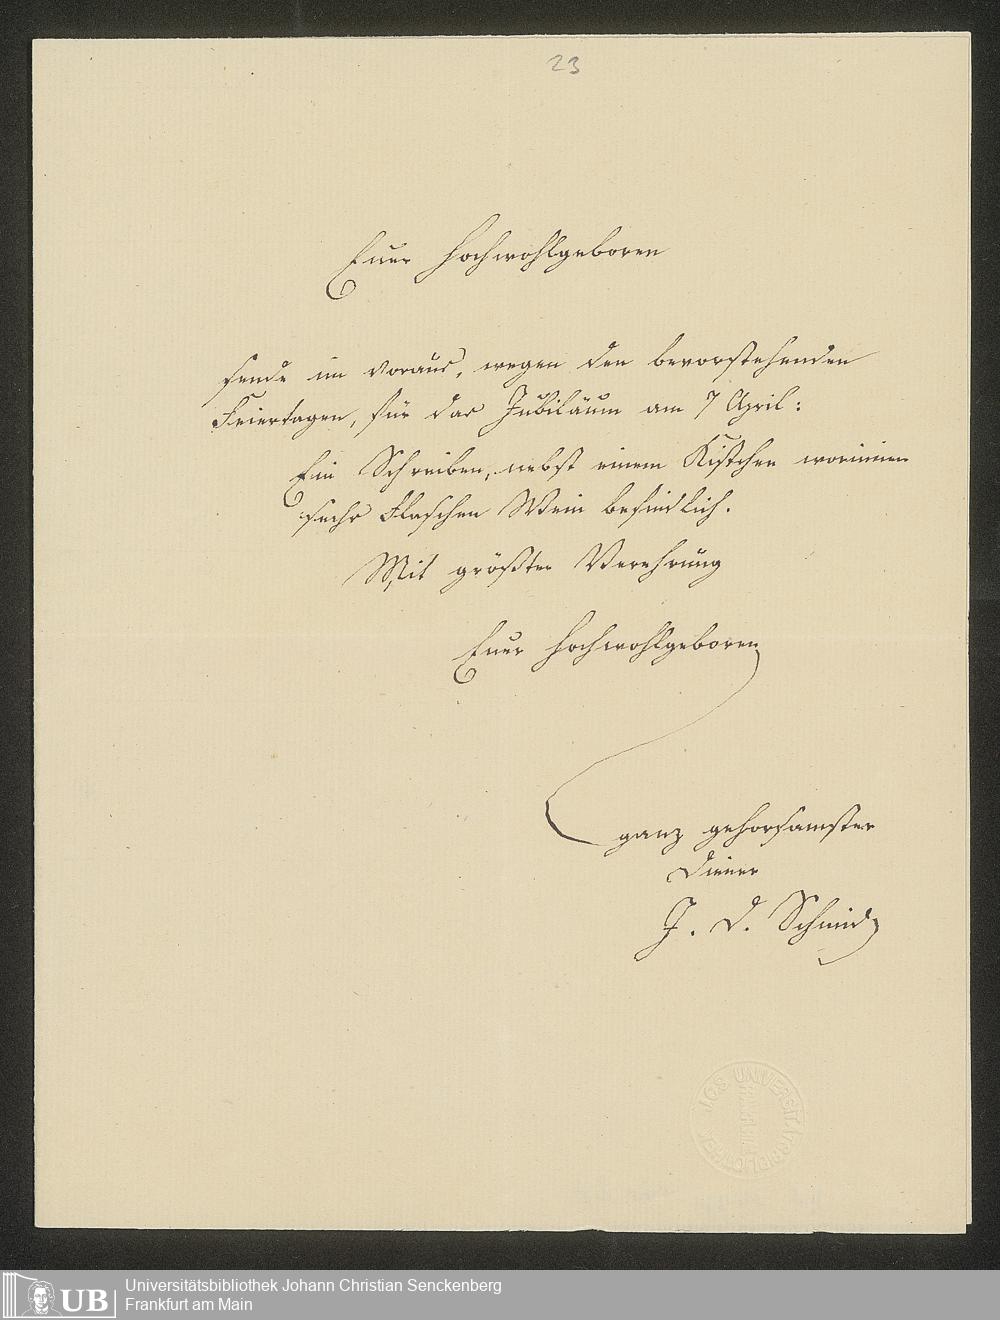 23
Euer Hochwohlgeboren
sende im voraus, wegen den bevorstehenden
Feiertagen, für das Jubiläum am 7 April:
Ein Schreiben, nebst einem Kistchen worinnen
sechs Flaschen Wein befindlich.
Mit größter Verehrung
Euer Hochwohlgeboren
ganz gehorsamster
Diener
J. D. Schmid
J.C.S. UNIVERSITÄTSBIBLIOTHEK
UB
Universitätsbibliothek Johann Christian Senckenberg
Frankfurt am Main